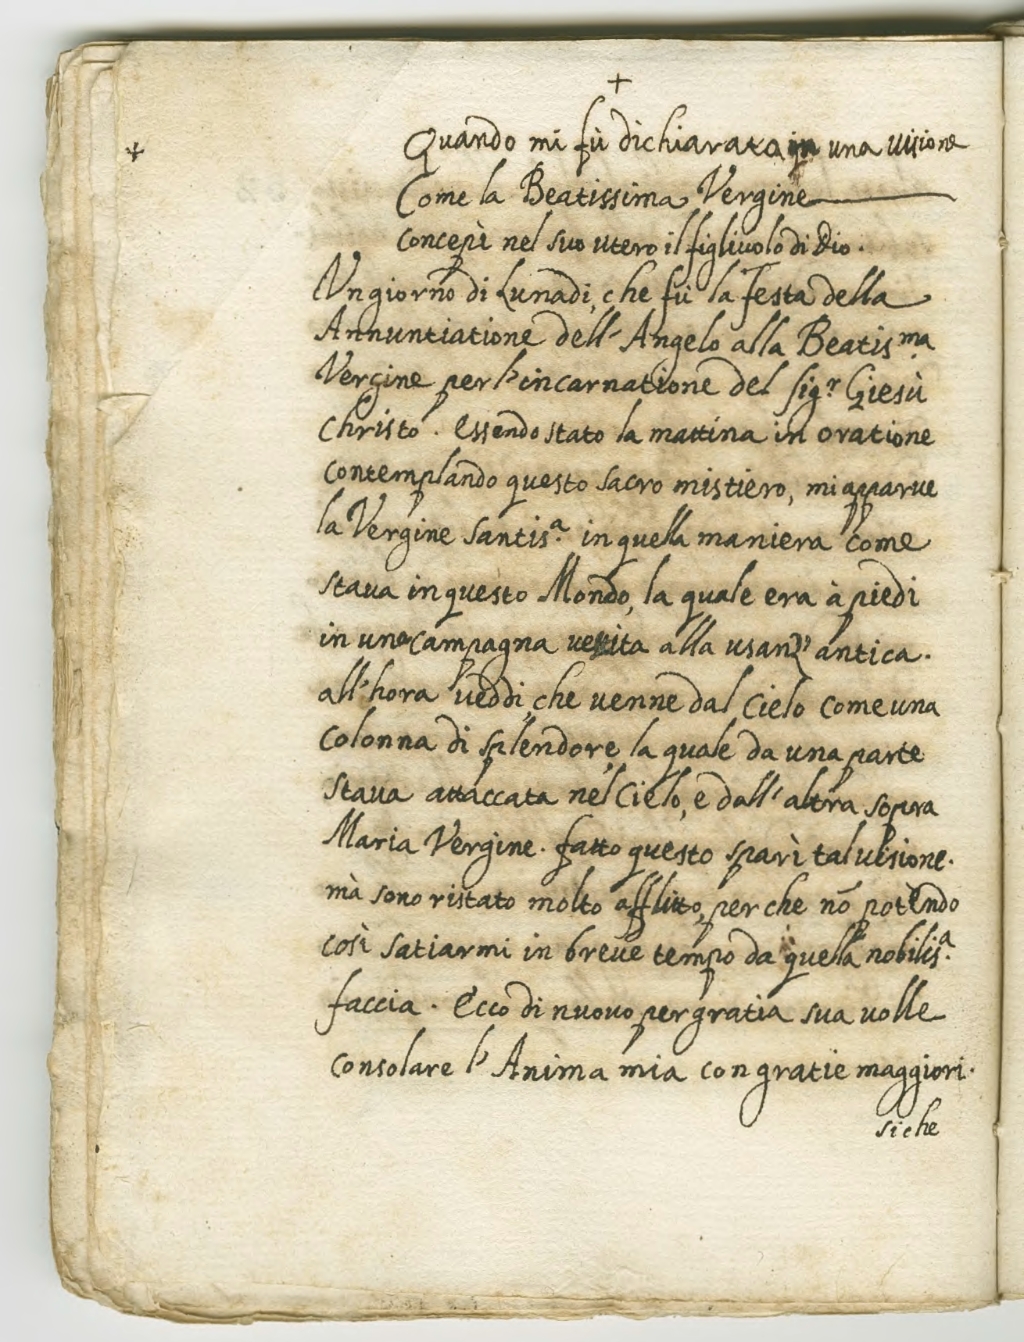 +
+
Quando mi fù dichiarato in una uisione
Come la Beatissima Vergine
concepì nel suo utero il figliuolo di Dio.
Un giorno di Lunadi, che fù la Festa della
Annuntiatione dell' Angelo alla Beatis.ma
Vergine per l'incarnatione del sig.r Giesù
Christo. Essendo stato la mattina in oratione
contemplando questo sacro mistiero, mi apparue
la Vergine Santis.a in quella maniera come
staua in questo Mondo, la quale era à piedi
in una campagna uestita alla usanz' antica.
all'hora ueddi, che uenne dal Cielo come una
Colonna di splendore, la quale da una parte
staua attaccata nel Cielo, e dall' altra sopra
Maria Vergine. fatto questo sparì tal uisione.
mà sono ristato molto afflitto, perche nō potendo
così satiarmi in breue tempo da quella nobilis.a
faccia. Ecco di nuouo per gratia sua uolle
consolare l' Anima mia con gratie maggiori.
siche